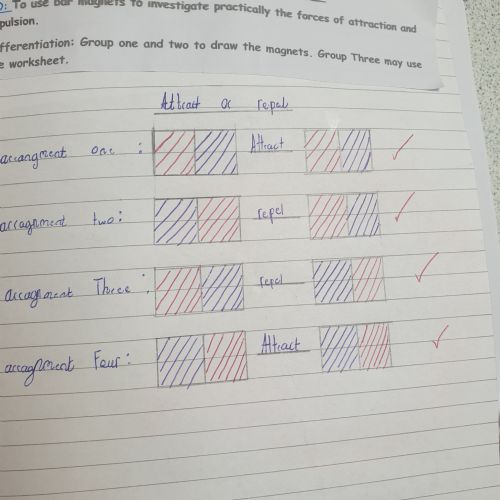 To use bar magnets to investigate practically the forces of attraction and
pulsion.
fferentiation: Group one and two to draw the magnets. Group Three may use
e worksheet.
Attract or repel
arrangment one : Attract
arragnment two: repel
arragnment Three: repel
arragnment Four: Attract